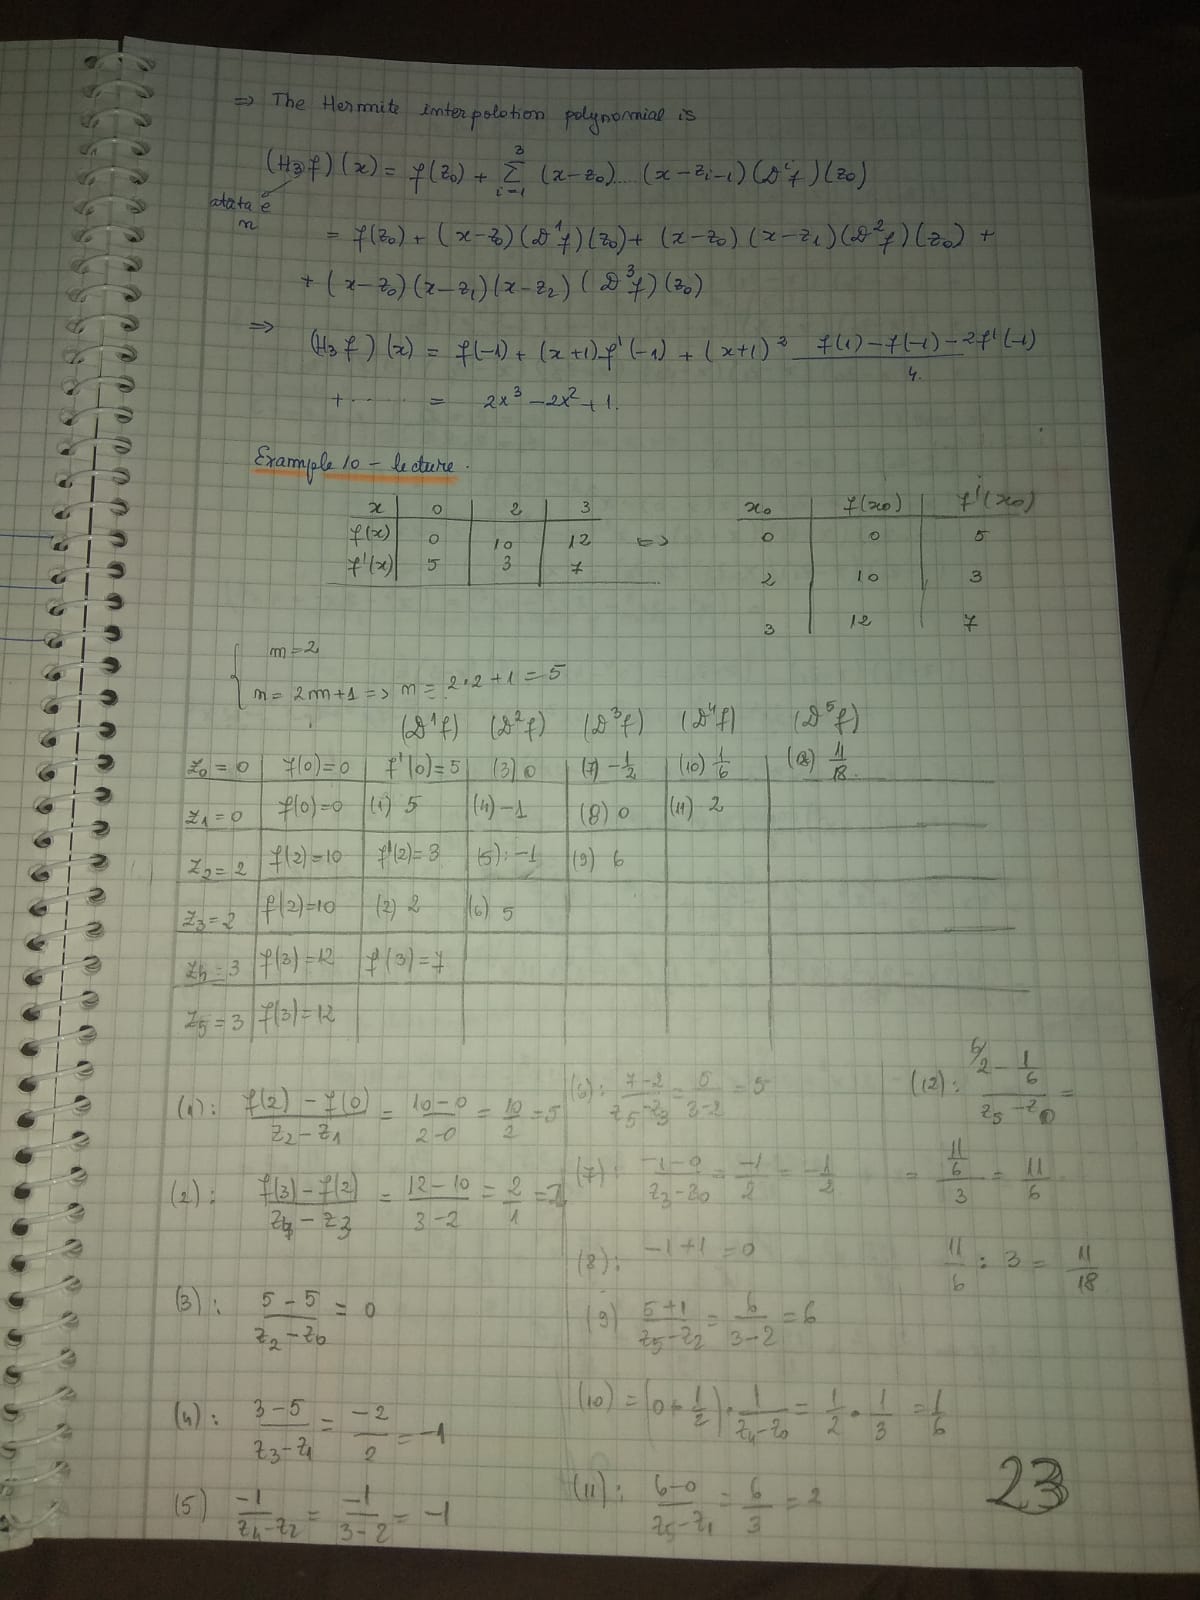 => The Hermite interpolation polynomial is
(H3f)(x) = f(z0) + 3 Σ i=1 (x-z0)....(x-zi-1)(D^i f)(z0)
n
= f(z0) + (x-z0)(D^1 f)(z0) + (x-z0)(x-z1)(D^2 f)(z0) +
+ (x-z0)(x-z1)(x-z2)(D^3 f)(z0)
=>
(H3f)(x) = f(-1) + (x+1) f'(-1) + (x+1)^2 (f(1)-f(-1)-2f'(-1))/4.
+ ...... = 2x^3 - 2x^2 + 1.
Example 10 - lecture.
x | 0 | 2 | 3
f(x) | 0 | 10 | 12
f'(x) | 5 | 3 | 7
<=>
x0 | f(x0) | f'(x0)
0 | 0 | 5
2 | 10 | 3
3 | 12 | 7
m=2
n = 2m+1 => n = 2·2+1 = 5
(D^1 f) (D^2 f) (D^3 f) (D^4 f) (D^5 f)
z0=0 | f(0)=0 | f'(0)=5 | (3) 0 | (7) -1/2 | (10) 1/6 | (12) 11/18
z1=0 | f(0)=0 | (1) 5 | (4) -1 | (8) 0 | (11) 2
z2=2 | f(2)=10 | f'(2)=3 | (5): -1 | (9) 6
z3=2 | f(2)=10 | (2) 2 | (6) 5
z4=3 | f(3)=12 | f'(3)=7
z5=3 | f(3)=12
(1): (f(2) - f(0))/(z2-z1) = (10-0)/(2-0) = 10/2 = 5
(2): (f(3) - f(2))/(z4 - z3) = (12-10)/(3-2) = 2/1 = 2
(3): (5-5)/(z2-z0) = 0
(4): (3-5)/(z3-z1) = -2/2 = -1
(5) -1/(z4-z2) = -1/(3-2) = -1
(6): (7-2)/(z5-z3) = 5/(3-2) = 5
(7): (-1-0)/(z3-z0) = -1/2 = -1/2
(8): -1+1 = 0
(9) (5+1)/(z5-z2) = 6/(3-2) = 6
(10) = (0+1/2)·1/(z4-z0) = 1/2 · 1/3 = 1/6
(11): (6-0)/(z5-z1) = 6/3 = 2
(12): (6/2 - 1/6)/(z5-z0) =
= (11/6)/3 = 11/6
11/6 : 3 = 11/18
23